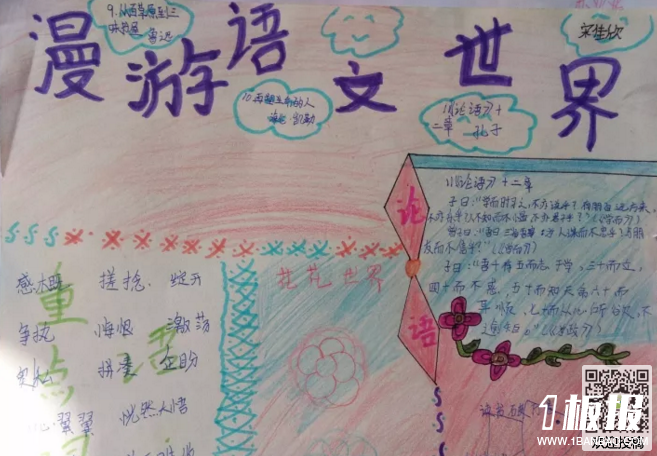 9.从百草原到三
味书屋 鲁迅
漫游语文世界
宋佳欣
10.再塑生命的人
海伦·凯勒
11《论语》十
二章 孔子
论语
11《论语》十二章
子曰:"学而时习之,不亦说乎?有朋自远方来,
不亦乐乎?人不知而不愠,不亦君子乎?"(《学而》)
友而不信乎?"(《学而》)
子曰:"吾十有五而志于学,三十而立,
四十而不惑,五十而知天命,六十而
耳顺,七十而从心所欲,不
花花世界
重点词
感慨 搓捻 绽开
争执 悔恨 激荡
企盼
翼翼 恍然大悟
1板报
WWW.1BANBAO.COM
欢迎投稿